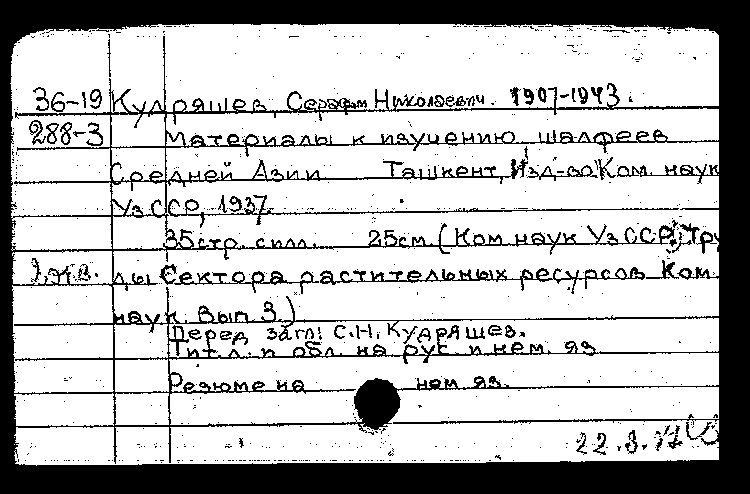 36-19 Кудряшев, Серафим Николаевич. 1907-1943.
288-3 Материалы к изучению шалфеев
Средней Азии Ташкент, Изд-во Ком. наук
УзССР, 1937.
35 стр. с илл. 25см. (Ком наук УзССР. Тру
2 экз. ды Сектора растительных ресурсов Ком.
наук. Вып 3.)
Перед загл: С.Н. Кудряшев.
Тит. л. и обл. на рус. и нем. яз
Резюме на нем яз.
22.3.